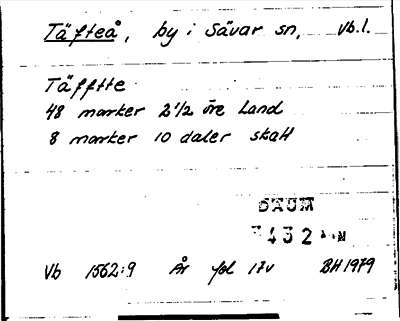 Täfteå, by i Sävar sn, Vb.l.
Täfftte
48 marker 2 1/2 öre Land
8 marker 10 daler skatt
DAUM
432
Vb 1562:9 År fol 17v BH 1979